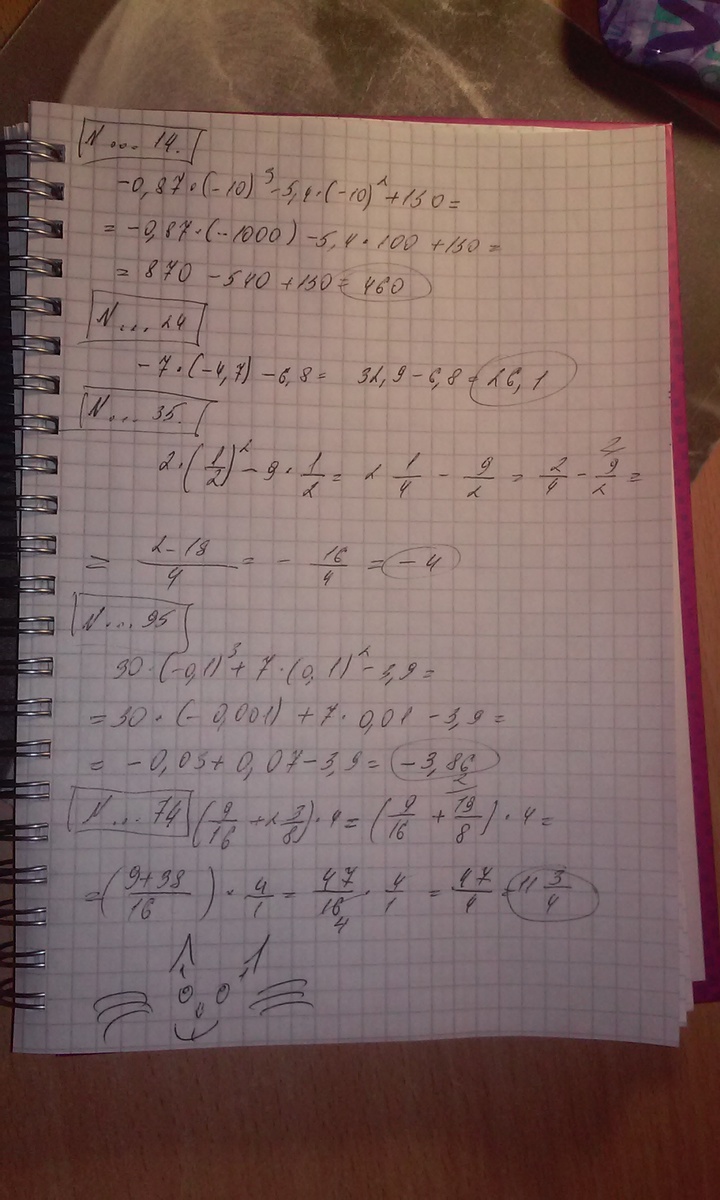 N ... 14.
-0,87·(-10)³-5,4·(-10)²+130=
= -0,87·(-1000) -5,4·100 +130 =
= 870 -540 +130= 460
N ... 24
-7·(-4,7) -6,8= 32,9-6,8=26,1
N ... 35.
2·(1/2)²-9·1/2= 2 1/4 - 9/2 = 2/4 - 9/2 =
= 2-18/4 = - 16/4 = -4
N ... 95
30·(-0,1)³+7·(0,1)²-3,9=
=30·(-0,001) +7·0,01 -3,9=
= -0,03+0,07-3,9= -3,86
N ... 74 (9/16 +2 3/8)·4= (9/16 + 19/8)·4=
=(9+38/16)·4/1= 47/16·4/1 = 47/4 =11 3/4